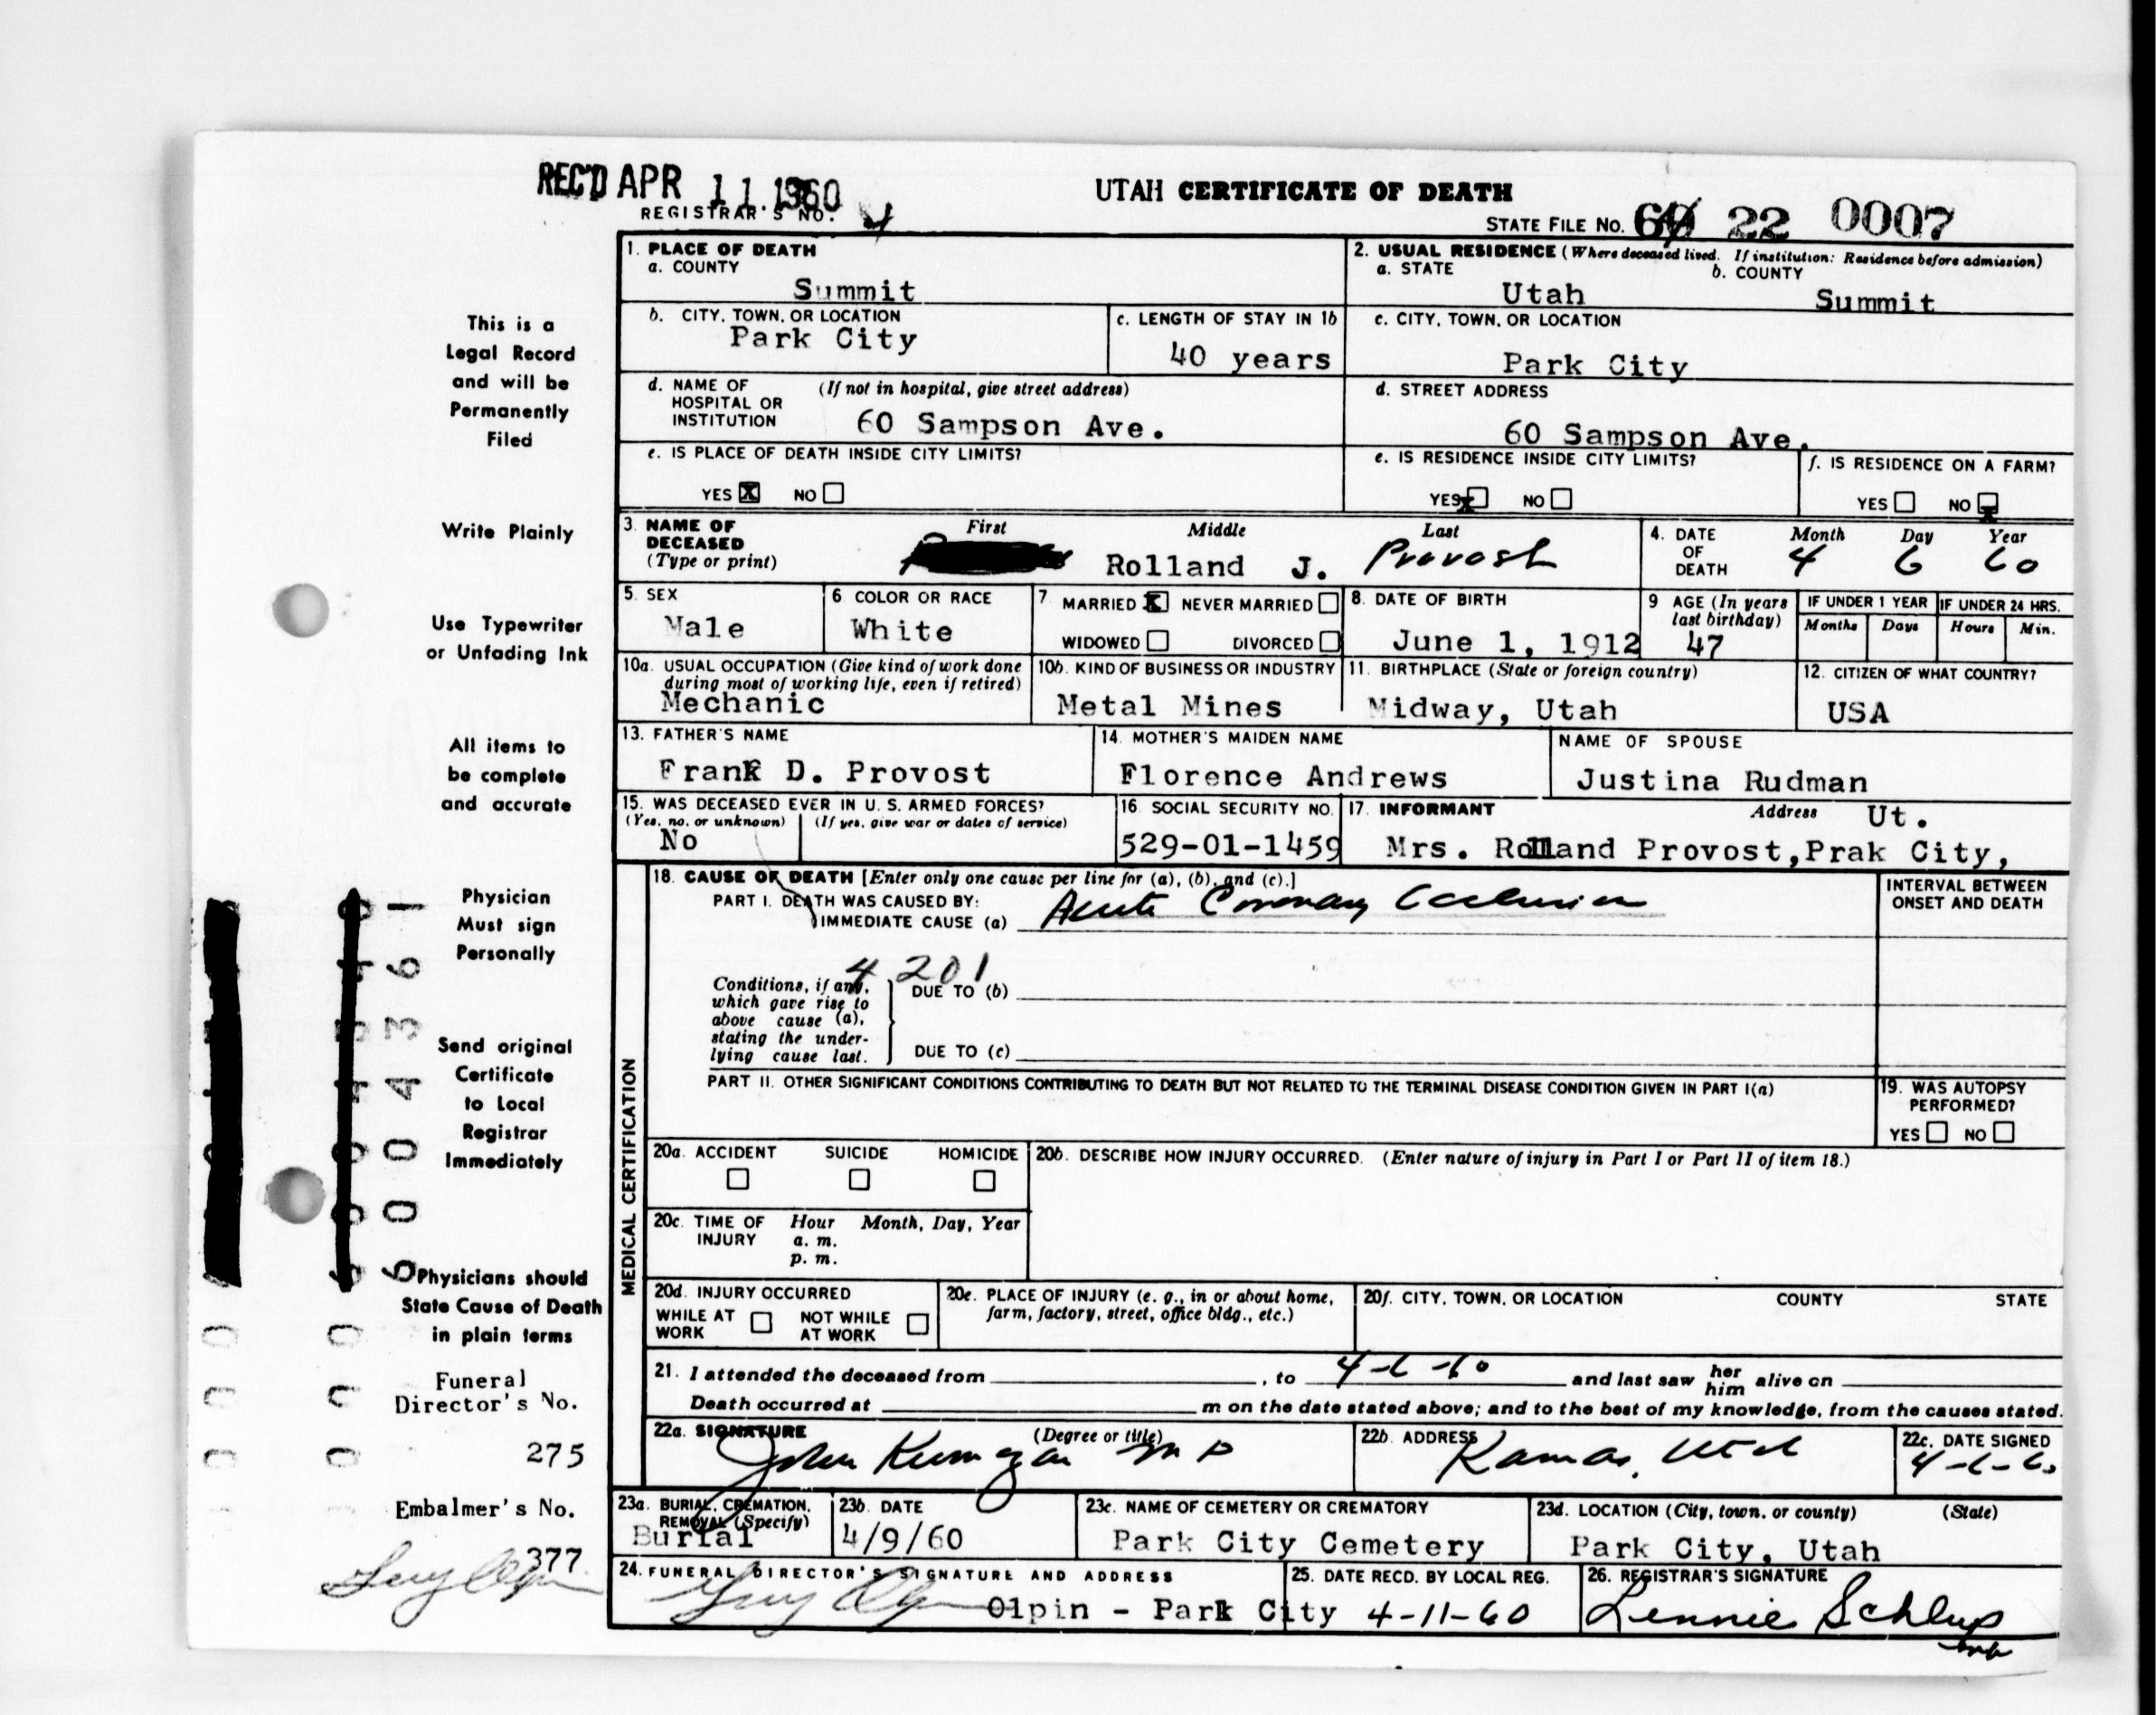 REC'D APR 11 1960
REGISTRAR'S NO. 4
UTAH CERTIFICATE OF DEATH
STATE FILE NO. 60 22 0007
1. PLACE OF DEATH
a. COUNTY
Summit
2. USUAL RESIDENCE (Where deceased lived. If institution: Residence before admission)
a. STATE
Utah
b. COUNTY
Summit
b. CITY, TOWN, OR LOCATION
Park City
c. LENGTH OF STAY IN 1b
40 years
c. CITY, TOWN, OR LOCATION
Park City
d. NAME OF HOSPITAL OR INSTITUTION
(If not in hospital, give street address)
60 Sampson Ave.
d. STREET ADDRESS
60 Sampson Ave.
e. IS PLACE OF DEATH INSIDE CITY LIMITS?
YES X NO
e. IS RESIDENCE INSIDE CITY LIMITS?
YES x NO
f. IS RESIDENCE ON A FARM?
YES NO x
3. NAME OF DECEASED (Type or print)
First Middle Last
Rolland J. Provost
4. DATE OF DEATH
Month Day Year
4 6 60
5. SEX
Male
6. COLOR OR RACE
White
7. MARRIED X NEVER MARRIED
WIDOWED DIVORCED
8. DATE OF BIRTH
June 1, 1912
9 AGE (In years last birthday)
47
IF UNDER 1 YEAR
Months Days
IF UNDER 24 HRS.
Hours Min.
10a. USUAL OCCUPATION (Give kind of work done during most of working life, even if retired)
Mechanic
10b. KIND OF BUSINESS OR INDUSTRY
Metal Mines
11. BIRTHPLACE (State or foreign country)
Midway, Utah
12. CITIZEN OF WHAT COUNTRY?
USA
13. FATHER'S NAME
Frank D. Provost
14. MOTHER'S MAIDEN NAME
Florence Andrews
NAME OF SPOUSE
Justina Rudman
15. WAS DECEASED EVER IN U. S. ARMED FORCES?
(Yes, no, or unknown) (If yes, give war or dates of service)
No
16. SOCIAL SECURITY NO.
529-01-1459
17. INFORMANT Address
Ut.
Mrs. Rolland Provost, Prak City,
MEDICAL CERTIFICATION
18. CAUSE OF DEATH [Enter only one cause per line for (a), (b), and (c).]
PART I. DEATH WAS CAUSED BY:
IMMEDIATE CAUSE (a) Acute Coronary Occlusion
INTERVAL BETWEEN ONSET AND DEATH
4201
Conditions, if any, which gave rise to above cause (a), stating the underlying cause last.
DUE TO (b)
DUE TO (c)
PART II. OTHER SIGNIFICANT CONDITIONS CONTRIBUTING TO DEATH BUT NOT RELATED TO THE TERMINAL DISEASE CONDITION GIVEN IN PART I(a)
19. WAS AUTOPSY PERFORMED?
YES NO
20a. ACCIDENT SUICIDE HOMICIDE
20b. DESCRIBE HOW INJURY OCCURRED. (Enter nature of injury in Part I or Part II of item 18.)
20c. TIME OF INJURY
Hour Month, Day, Year
a. m.
p. m.
20d. INJURY OCCURRED
WHILE AT WORK NOT WHILE AT WORK
20e. PLACE OF INJURY (e. g., in or about home, farm, factory, street, office bldg., etc.)
20f. CITY, TOWN, OR LOCATION COUNTY STATE
21. I attended the deceased from , to 4-6-60 and last saw her him alive on
Death occurred at m on the date stated above; and to the best of my knowledge, from the causes stated.
22a. SIGNATURE (Degree or title)
John Kumagai M D
22b. ADDRESS
Kamas, Utah
22c. DATE SIGNED
4-6-60
23a. BURIAL, CREMATION, REMOVAL (Specify)
Burial
23b. DATE
4/9/60
23c. NAME OF CEMETERY OR CREMATORY
Park City Cemetery
23d. LOCATION (City, town, or county) (State)
Park City, Utah
24. FUNERAL DIRECTOR'S SIGNATURE AND ADDRESS
Olpin - Park City
25. DATE RECD. BY LOCAL REG.
4-11-60
26. REGISTRAR'S SIGNATURE
Lennie Schlup
This is a
Legal Record
and will be
Permanently
Filed
Write Plainly
Use Typewriter
or Unfading Ink
All items to
be complete
and accurate
Physician
Must sign
Personally
Send original
Certificate
to Local
Registrar
Immediately
Physicians should
State Cause of Death
in plain terms
Funeral
Director's No.
275
Embalmer's No.
377
6004361